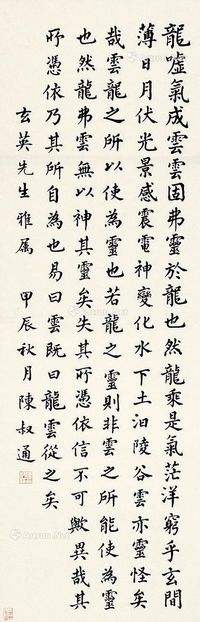 龍噓氣成雲雲固弗靈於龍也然龍乘是氣茫洋窮乎玄間
薄日月伏光景感震電神變化水下土汩陵谷雲亦靈怪矣
哉雲龍之所以使為靈也若龍之靈則非雲之所能使為靈
也然龍弗雲無以神其靈矣失其所憑依信不可歟異哉其
所憑依乃其所自為也易曰雲既曰龍雲從之矣
玄英先生雅属 甲辰秋月陳叔通